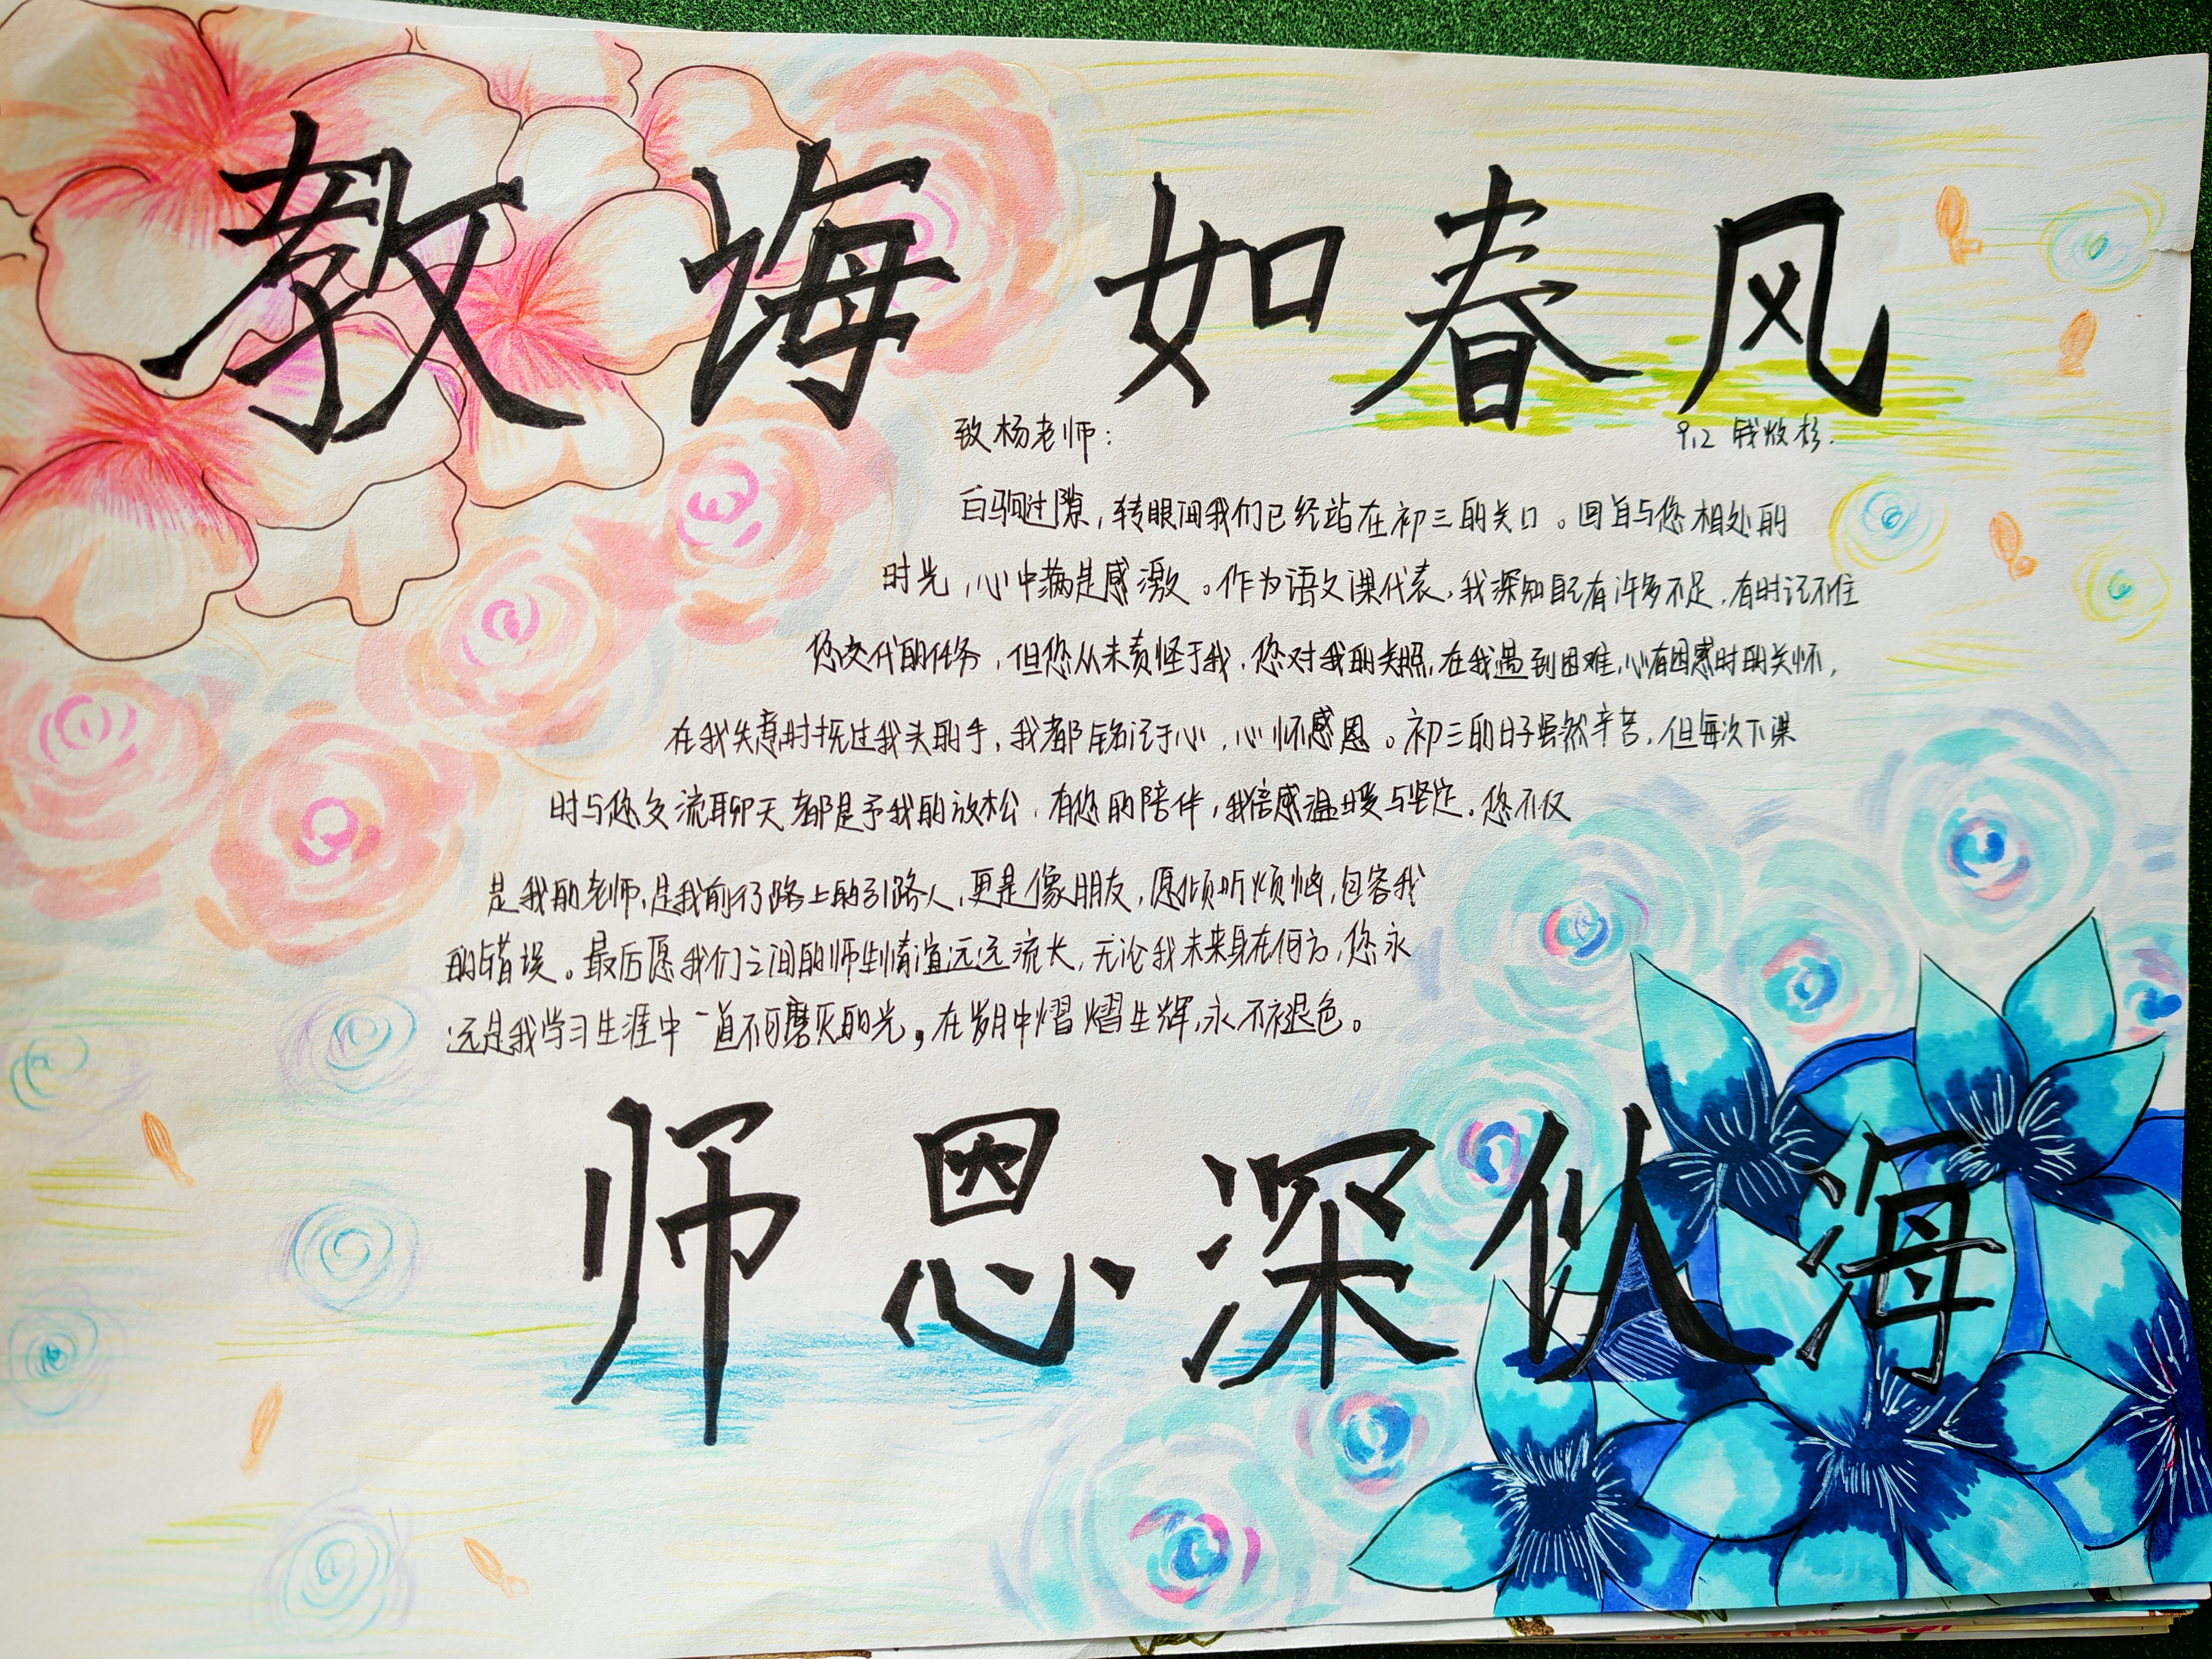 教诲如春风
致杨老师:
9.2 钱
白驹过隙,转眼间我们已经站在初三的关口。回首与您相处的
时光,心中满是感激。作为语文课代表,我深知自己有许多不足,有时记不住
您交代的任务,但您从未责怪于我,您对我的关照,在我遇到困难,心有困惑时的关怀,
在我失意时抚过我头的手,我都铭记于心,心怀感恩。初三的日子虽然辛苦,但每次下课
时与您交流聊天都是予我的放松,有您的陪伴,我倍感温暖与坚定。您不仅
是我的老师,是我前行路上的引路人,更是像朋友,愿倾听烦恼,包容我
的错误。最后愿我们之间的师生情谊远远流长,无论我未来身在何方,您永
远是我学习生涯中一道不可磨灭的光,在岁月中熠熠生辉,永不褪色。
师恩深似海